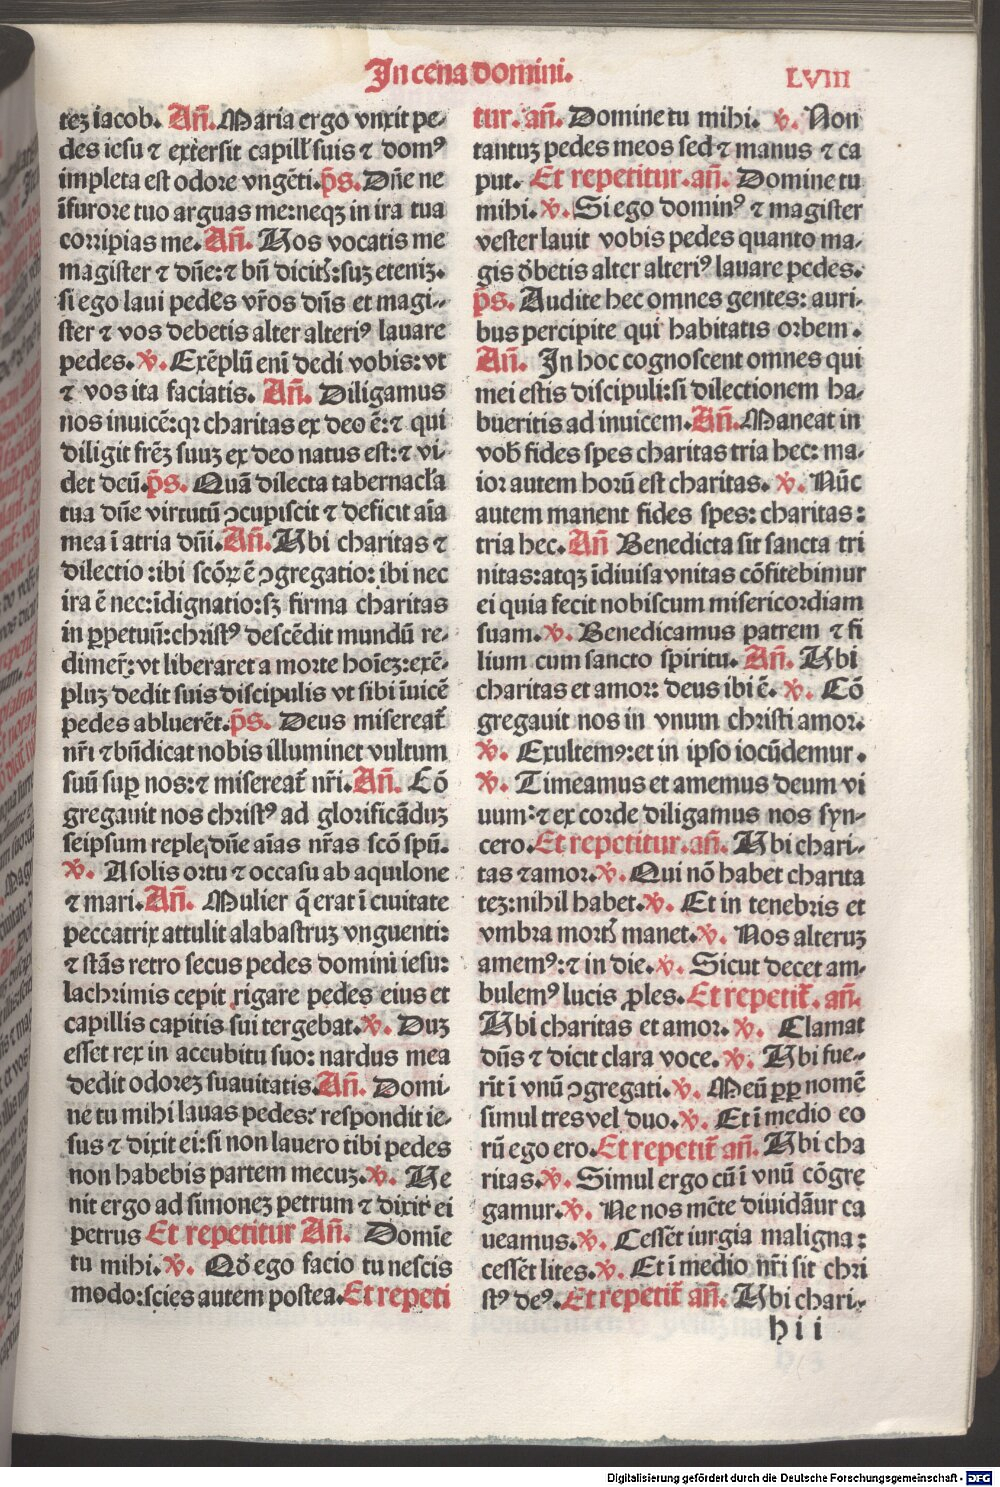 In cena domini.
LVIII
tez iacob. Añ. Maria ergo vnxit pe-
des iesu ⁊ extersit capill' suis ⁊ domꝰ
impleta est odore vngēti. p̄s. Dñe ne
ī furore tuo arguas me: neqꝫ in ira tua
corripias me. Añ. Vos vocatis me
magister ⁊ dñe: ⁊ bñ dicitꝭ: suꝫ eteniꝫ.
si ego laui pedes vr̄os dñs et magi-
ster ⁊ vos debetis alter alteriꝰ lauare
pedes. ℣. Exēplū enī dedi vobis: vt
⁊ vos ita faciatis. Añ. Diligamus
nos inuicē: qꝛ charitas ex deo ē: ⁊ qui
diligit fr̄eꝫ suuꝫ ex deo natus est: ⁊ vi-
det deū. p̄s. Quā dilecta tabernacl'a
tua dñe virtutū ꝯcupiscit ⁊ deficit aīa
mea ī atria dñi. Añ. Vbi charitas ⁊
dilectio: ibi scōꝝ ē ꝯgregatio: ibi nec
ira ē nec: īdignatio: sꝫ firma charitas
in ꝑpetuū: christꝰ descēdit mundū re-
dimer̄: vt liberaret a morte hoīeꝫ: exē-
pluꝫ dedit suis discipulis vt sibi īuicē
pedes abluerēt. p̄s. Deus misereat̄
nr̄i ⁊ bñdicat nobis illuminet vultum
suū suꝑ nos: ⁊ misereat̄ nr̄i. Añ. Cō
gregauit nos christꝰ ad glorificāduꝫ
seipsum reple dñe aīas nr̄as scō spū.
℣. A solis ortu ⁊ occasu ab aquilone
⁊ mari. Añ. Mulier q̄ erat ī ciuitate
peccatrix attulit alabastruꝫ vnguenti:
⁊ stās retro secus pedes domini iesu:
lachrimis cepit rigare pedes eius et
capillis capitis sui tergebat. ℣. Duꝫ
esset rex in accubitu suo: nardus mea
dedit odoreꝫ suauitatis. Añ. Domi-
ne tu mihi lauas pedes: respondit ie-
sus ⁊ dixit ei: si non lauero tibi pedes
non habebis partem mecuꝫ. ℣. Ve
nit ergo ad simoneꝫ petrum ⁊ dixit ei
petrus Et repetitur Añ. Domīe
tu mihi. ℣. Qď ego facio tu nescis
modo: scies autem postea. Et repeti
tur. añ. Domine tu mihi. ℣. Non
tantuꝫ pedes meos sed ⁊ manus ⁊ ca
put. Et repetitur. añ. Domine tu
mihi. ℣. Si ego dominꝰ ⁊ magister
vester lauit vobis pedes quanto ma-
gis ďbetis alter alteriꝰ lauare pedes.
p̄s. Audite hec omnes gentes: auri-
bus percipite qui habitatis orbem.
Añ. In hoc cognoscent omnes qui
mei estis discipuli: si dilectionem ha-
bueritis ad inuicem. Añ. Maneat in
vob̄ fides spes charitas tria hec: ma-
ior autem horū est charitas. ℣. Nūc
autem manent fides spes: charitas:
tria hec. Añ Benedicta sit sancta tri
nitas: atqꝫ īdiuisa vnitas cōfitebimur
ei quia fecit nobiscum misericordiam
suam. ℣. Benedicamus patrem ⁊ fi
lium cum sancto spiritu. Añ. Vbi
charitas et amor: deus ibi ē. ℣. Cō
gregauit nos in vnum christi amor.
℣. Exultemꝰ: et in ipso iocūdemur.
℣. Timeamus et amemus deum vi
uum: ⁊ ex corde diligamus nos syn-
cero. Et repetitur. añ. Vbi chari-
tas ⁊ amor. ℣. Qui nō habet charita
teꝫ: nihil habet. ℣. Et in tenebris et
vmbra mortꝭ manet. ℣. Nos alteruꝫ
amemꝰ: ⁊ in die. ℣. Sicut decet am-
bulemꝰ lucis ꝓles. Et repetit̄. añ.
Vbi charitas et amor. ℣. Clamat
dñs ⁊ dicit clara voce. ℣. Vbi fue-
rīt ī vnū ꝯgregati. ℣. Meū ꝓꝑ nomē
simul tres vel duo. ℣. Et ī medio eo
rū ego ero. Et repetit̄ añ. Vbi cha
ritas. ℣. Simul ergo cū ī vnū cōgre
gamur. ℣. Ne nos mēte diuidāur ca
ueamus. ℣. Cessēt iurgia maligna:
cessēt lites. ℣. Et ī medio nr̄i sit chri
stꝰ deꝰ. Et repetit̄ añ. Vbi chari-
h ii
Digitalisierung gefördert durch die Deutsche Forschungsgemeinschaft - DFG